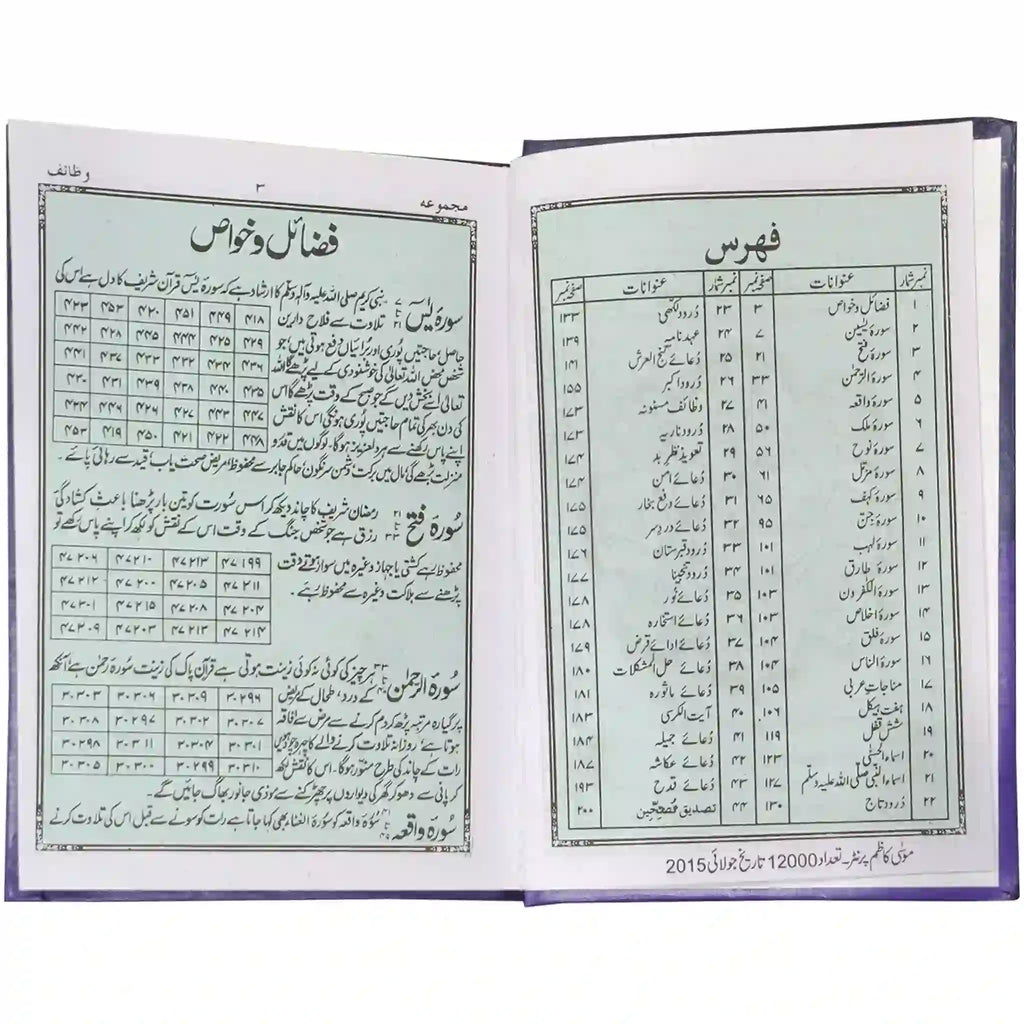 فہرس
نمبر شمار عنوانات صفحہ نمبر نمبر شمار عنوانات صفحہ نمبر
۱ فضائل و خواص ۳ ۲۳ دُرود لکھی ۱۳۳
۲ سورۂ یٰسین ۷ ۲۴ عہد نامہ ۱۳۹
۳ سورۂ فتح ۲۱ ۲۵ دُعائے گنج العرش ۱۴۱
۴ سورۂ الرحمٰن ۳۳ ۲۶ دُرود اکبر ۱۵۵
۵ سورۂ واقعہ ۴۱ ۲۷ وظائف مسنونہ ۱۷۳
۶ سورۂ ملک ۵۰ ۲۸ دُرود ناریہ ۱۷۳
۷ سورۂ نوح ۵۶ ۲۹ تعویذ نظرِ بد ۱۷۴
۸ سورۂ مزمل ۶۱ ۳۰ دُعائے امن ۱۷۴
۹ سورۂ کہف ۶۵ ۳۱ دُعائے دفع بخار ۱۷۵
۱۰ سورۂ جن ۹۵ ۳۲ دُعائے دردِ سر ۱۷۵
۱۱ سورۂ لہب ۱۰۱ ۳۳ دُرود قبرستان ۱۷۶
۱۲ سورۂ طارق ۱۰۱ ۳۴ دُرود تنجینا ۱۷۷
۱۳ سورۂ الکٰفرون ۱۰۳ ۳۵ دُعائے نُور ۱۷۸
۱۴ سورۂ اخلاص ۱۰۳ ۳۶ دُعائے استخارہ ۱۷۸
۱۵ سورۂ فلق ۱۰۴ ۳۷ دُعائے ادائے قرض ۱۷۹
۱۶ سورۂ الناس ۱۰۴ ۳۸ دُعائے حل المشکلات ۱۸۰
۱۷ مناجات عربی ۱۰۵ ۳۹ دُعائے ماثورہ ۱۸۱
۱۸ ہفت ہیکل ۱۰۶ ۴۰ آیت الکرسی ۱۸۳
۱۹ شش قفل ۱۱۹ ۴۱ دُعائے جمیلہ ۱۸۴
۲۰ اسماء الحسنٰی ۱۲۳ ۴۲ دُعائے عکاشہ ۱۸۷
۲۱ اسماء النبی صلی اللہ علیہ وسلم ۱۲۷ ۴۳ دُعائے قدح ۱۹۳
۲۲ دُرود تاج ۱۳۰ ۴۴ تصدیق مُصَحِّحِین ۲۰۰
موسٰی کاظم پرنٹر۔ تعداد 12000 تاریخ جولائی 2015
مجموعہ ۳ وظائف
فضائل و خواص
سورۂ یٰس ۷ تا ۲۱ نبی کریم صلی اللہ علیہ وآلہ وسلم کا ارشاد ہے کہ سورۂ یٰس قرآن شریف کا دل ہے اس کی
تلاوت سے فلاح دارین
حاصل، حاجتیں پُوری اور بُرائیاں دفع ہوتی ہیں، جو
شخص محض اللہ تعالٰی کی خوشنودی کے لیے پڑھے گا اللہ
تعالٰی اُسے بخش دیں گے جو صبح کے وقت پڑھے گا اس
کی دن بھر کی تمام حاجتیں پوری ہونگی اس کا نقش
اپنے پاس رکھنے سے ہر دلعزیز ہوگا۔ لوگوں میں قدر و
منزلت بڑھے گی مال میں برکت، دشمن سرنگوں، حاکم جابر سے محفوظ، مریض صحت یاب، قید سے رہائی پائے۔
۴۱۸ ۴۴۹ ۴۵۱ ۴۲۰ ۴۵۳ ۴۲۳
۴۲۹ ۴۲۵ ۴۴۴ ۴۴۵ ۴۲۸ ۴۴۲
۴۳۶ ۴۳۴ ۴۳۲ ۴۳۳ ۴۳۷ ۴۴۱
۴۳۵ ۴۴۰ ۴۳۸ ۴۳۹ ۴۳۱ ۴۳۰
۴۴۷ ۴۴۳ ۴۲۷ ۴۲۶ ۴۴۶ ۴۲۴
۴۴۸ ۴۲۲ ۴۲۱ ۴۵۰ ۴۱۹ ۴۵۳
سُورۂ فتح ۲۱ تا ۳۳ رمضان شریف کا چاند دیکھ کر اس سُورت کو تین بار پڑھنا باعث کشادگی
رزق ہے جو شخص جنگ کے وقت اس کے نقش کو لکھ کر اپنے پاس رکھے تو
محفوظ رہے کشتی یا جہاز وغیرہ میں سوار ہوتے وقت
پڑھنے سے ہلاکت وغیرہ سے محفوظ رہے۔
۴۷۱۹۹ ۴۷۲۱۳ ۴۷۲۱۰ ۴۷۲۰۶
۴۷۲۱۱ ۴۷۲۰۵ ۴۷۲۰۰ ۴۷۲۱۲
۴۷۲۰۴ ۴۷۲۰۸ ۴۷۲۱۵ ۴۷۲۰۱
۴۷۲۱۴ ۴۷۲۱۳ ۴۷۲۰۳ ۴۷۲۰۹
سُورۃ الرحمٰن ۳۳ تا ۴۰ ہر چیز کی کوئی نہ کوئی زینت ہوتی ہے قرآن پاک کی زینت سُورۂ رحمٰن ہے آنکھ
کے درد، طحال کے مریض
پر گیارہ مرتبہ پڑھ کر دم کرنے سے مرض سے افاقہ
ہوتا ہے، روزانہ تلاوت کرنے والے کا چہرہ چودہویں
رات کے چاند کی طرح منوّر ہوگا۔ اس کا نقش لکھ
کر پانی سے دھو کر گھر کی دیواروں پر چھڑکنے سے موذی جانور بھاگ جائیں گے۔
۳۰۲۹۶ ۳۰۳۰۹ ۳۰۳۰۶ ۳۰۳۰۳
۳۰۳۰۷ ۳۰۳۰۲ ۳۰۲۹۷ ۳۰۳۰۸
۳۰۳۰۱ ۳۰۳۰۴ ۳۰۳۱۱ ۳۰۲۹۸
۳۰۳۱۰ ۳۰۲۹۹ ۳۰۳۰۰ ۳۰۳۰۵
سُورۂ واقعہ ۴۱ تا ۴۹ سُورۂ واقعہ کو سُورۂ الغناء بھی کہا جاتا ہے رات کو سونے سے قبل اس کی تلاوت کرنے